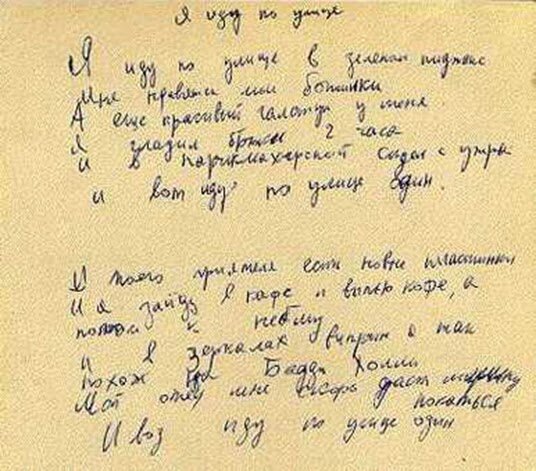 Я иду по улице
Я иду по улице в зеленом пиджаке
Мне нравятся мои ботинки
А еще красивый галстук у меня.
Я гладил брюки 2 часа
И в парикмахерской сидел с утра
и вот иду по улице один.
У моего приятеля есть новые пластинки
И я зайду в кафе и выпью кофе, а
потом к нему
И в зеркалах витрин я так
Похож на Бадди Холли
Мой отец мне скоро даст машину
покататься
И воз иду по улице один